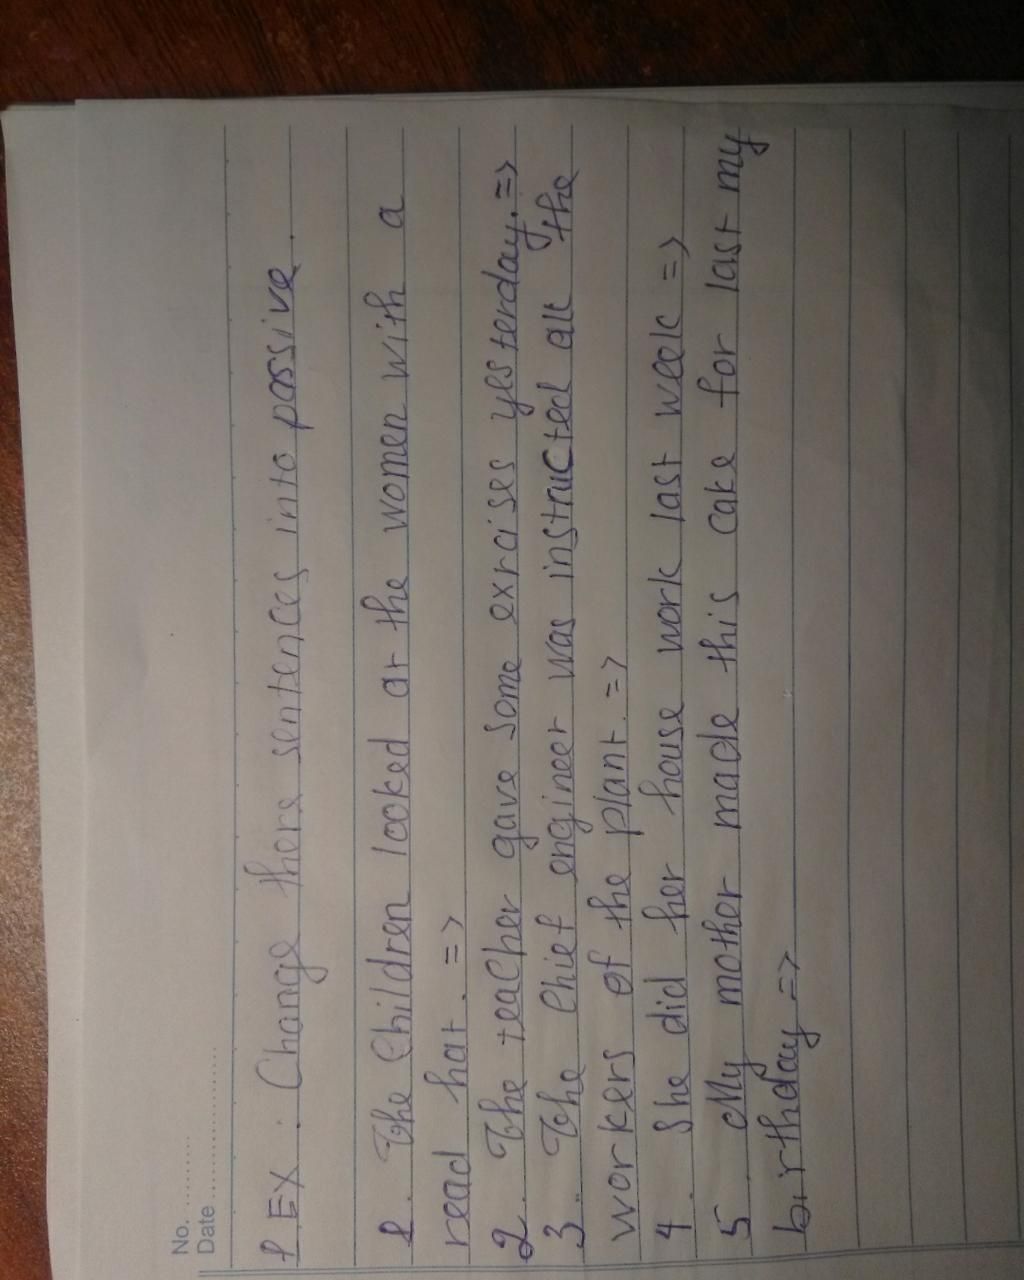 No. ............
Date ........................
1 EX : Change there sentences into passive.
1. The Children looked at the women with a
read hat. =>
2. The teacher gave some exrcises yesterday. =>
3. The Chief engineer was instructed all the
workers of the plant. =>
4. She did her house work last week =>
5. My mother made this cake for last my
birthday =>